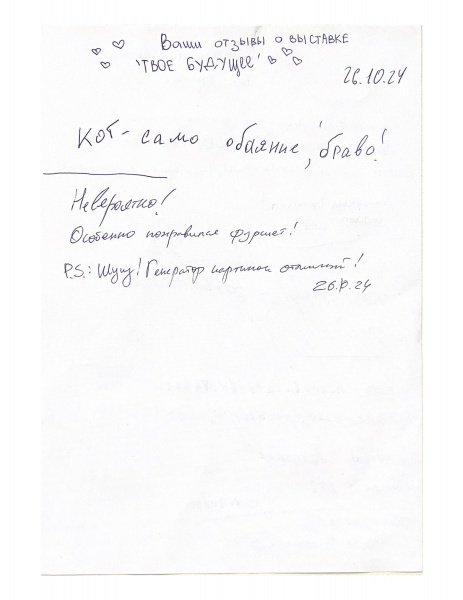 Ваши отзывы о выставке
'ТВОЕ БУДУЩЕЕ'
26.10.24
Кот - само обаяние, браво!
Невероятно!
Особенно понравился фуршет!
P.S.: Шучу! Генератор картинок отличный!
26.10.24